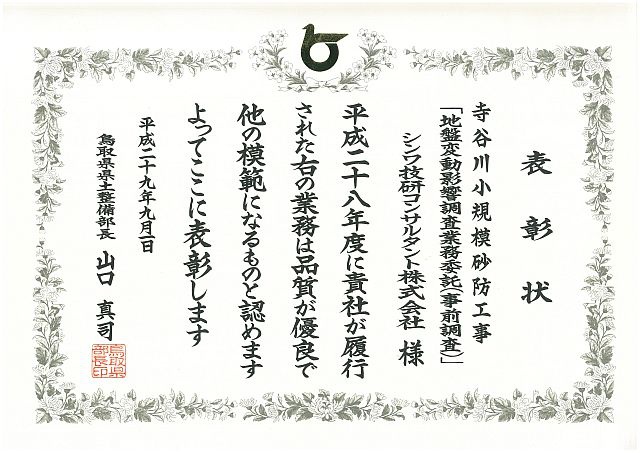 表彰状
寺谷川小規模砂防工事
「地盤変動影響調査業務委託(事前調査)」
シンワ技研コンサルタント株式会社 様
平成二十八年度に貴社が履行
された右の業務は品質が優良で
他の模範になるものと認めます
よってここに表彰します
平成二十九年九月一日
鳥取県県土整備部長 山口 真司
鳥取県
部長印